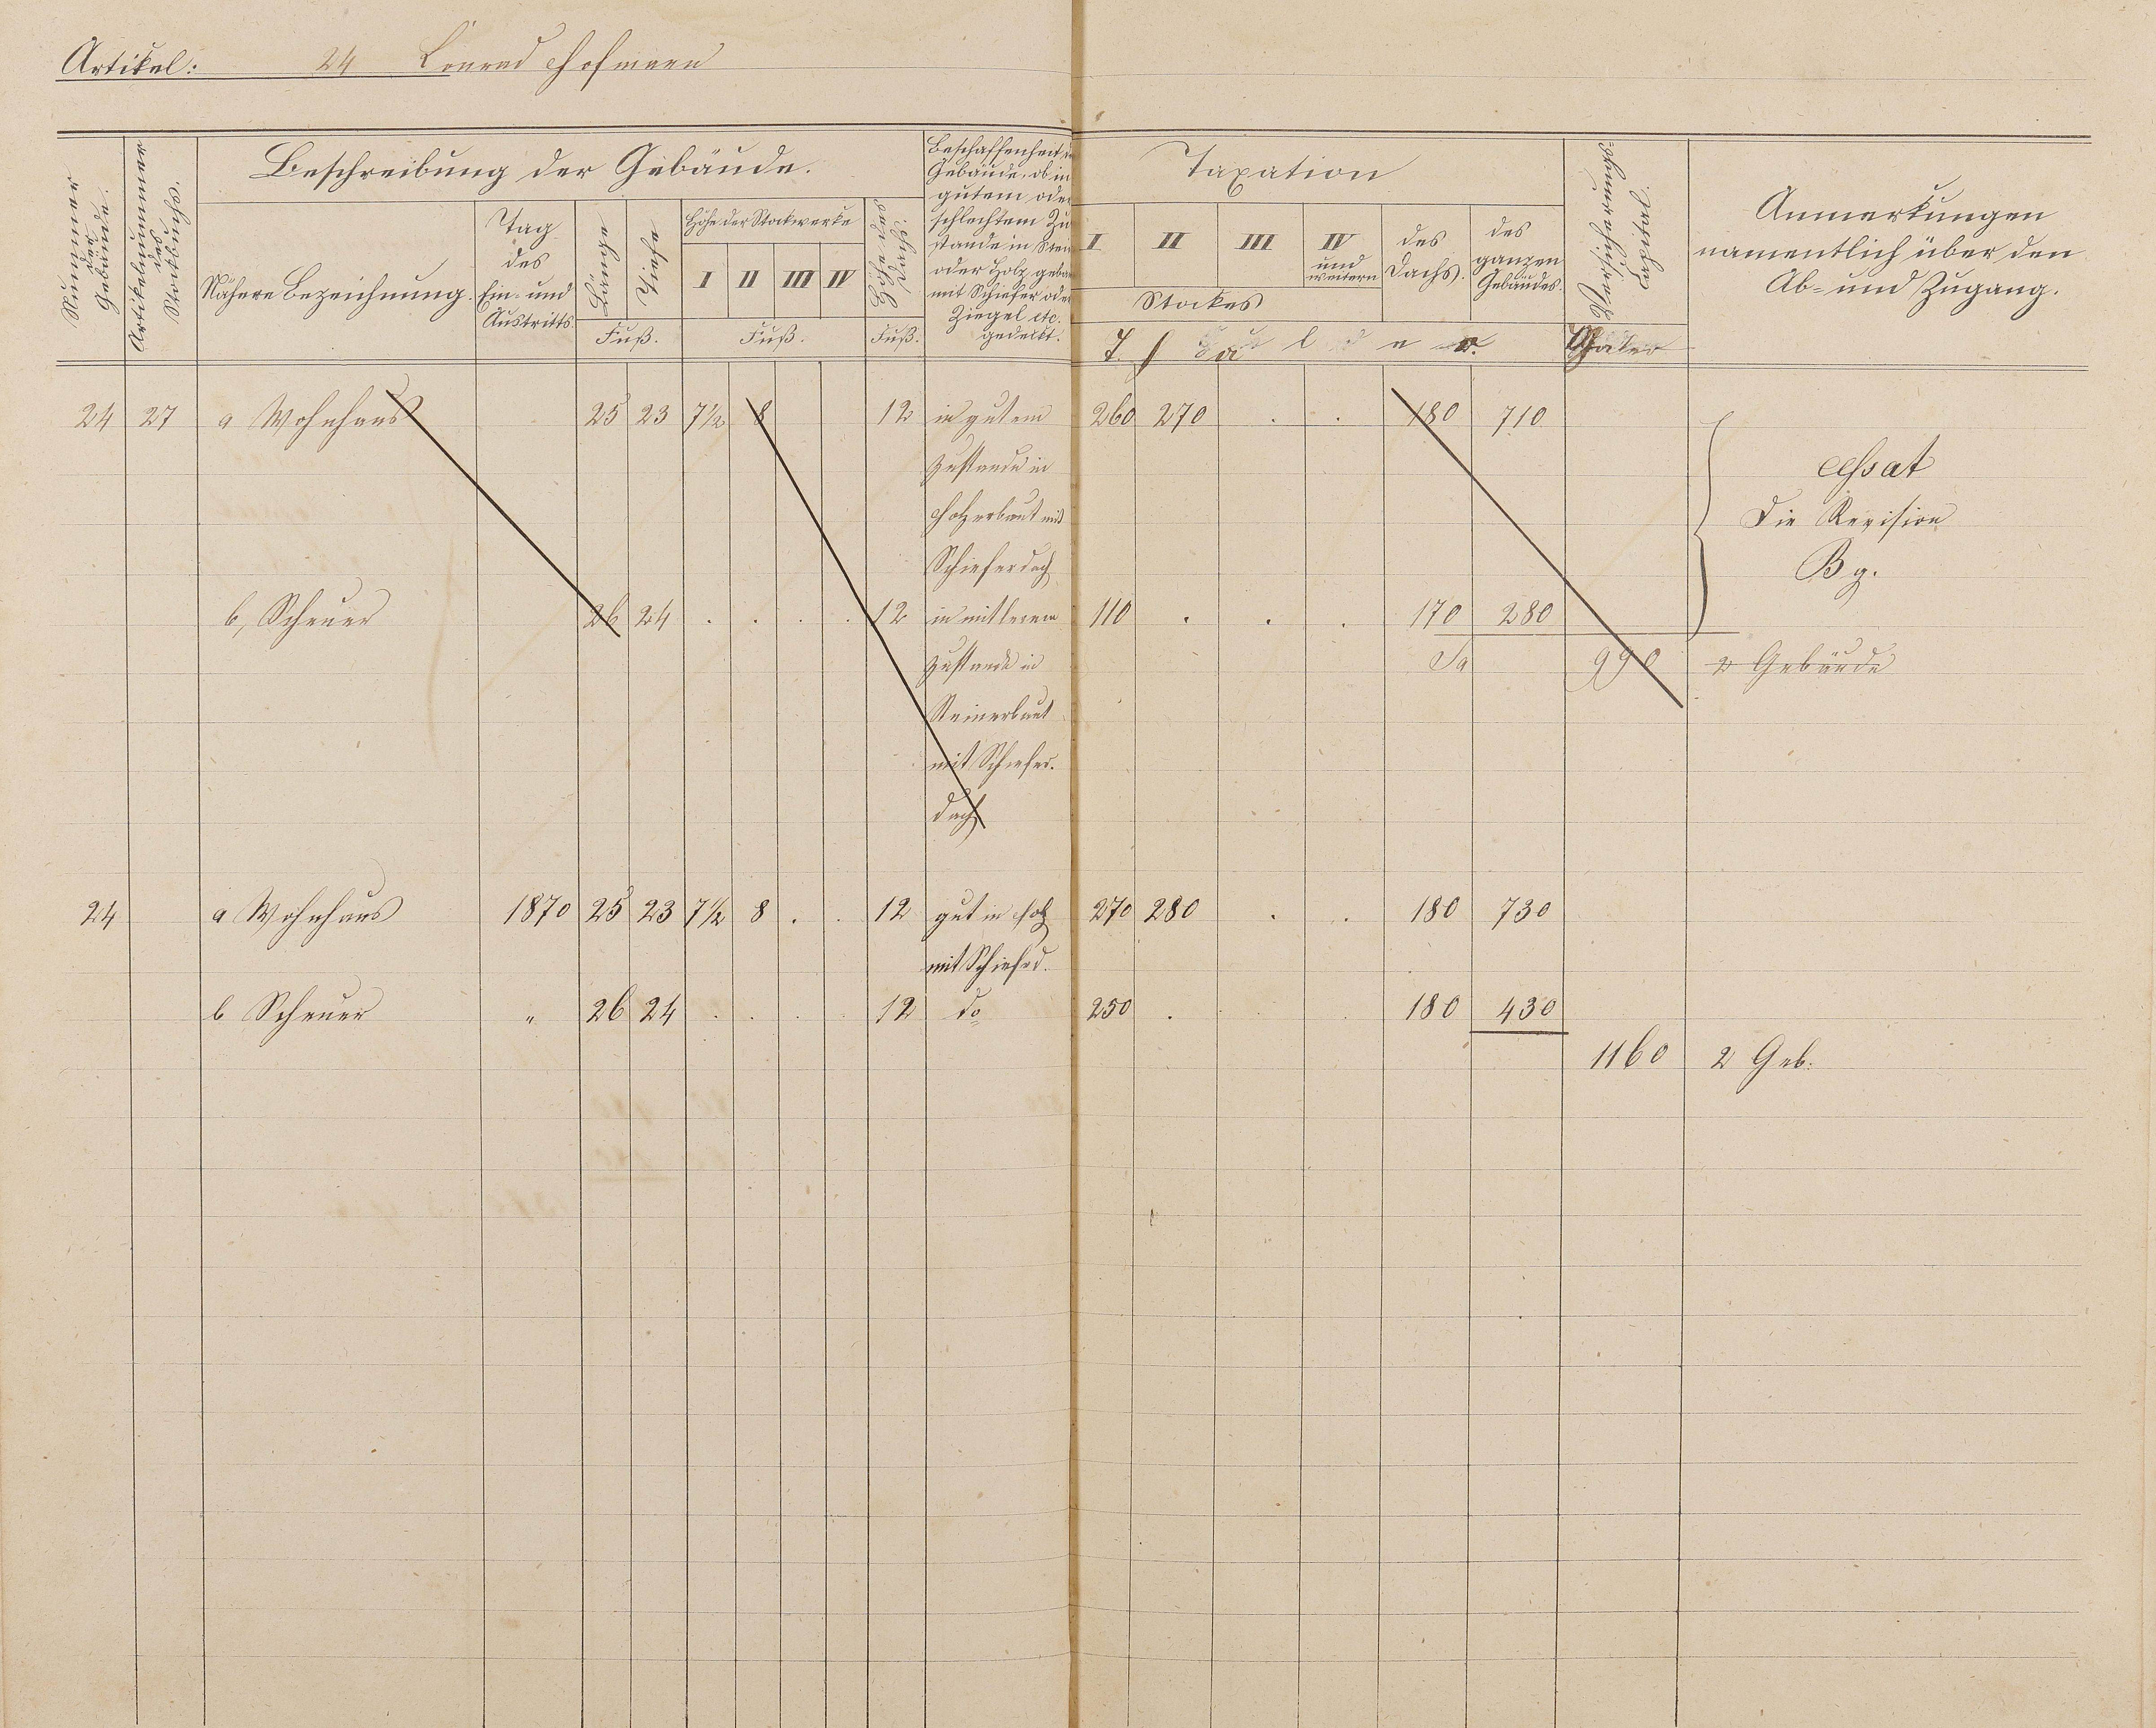 Artikel: 24 Conrad Hofmann
Nummer der Gebäude.
Artikelnummer des Stockbuchs.
Beschreibung der Gebäude.
Nähere Bezeichnung.
Tag des Ein- und Austritts
Länge
Tiefe
Fuß.
Höhe der Stockwerke
I II III IV
Fuß.
Höhe des Dachs.
Fuß.
Beschaffenheit der
Gebäude, ob in
gutem oder
schlechtem Zu-
stande in Stein
oder Holz gebaut
mit Schiefer oder
Ziegel etc.
gedeckt.
Taxation
I II III IV und weitern
Stockes
des Dachs.
des ganzen Gebäudes.
Versicherungs-
Capital.
Thaler
Anmerkungen
namentlich über den
Ab- und Zugang.
24 27 a Wohnhaus 25 23 7½ 8 12 in gutem 260 270 . . 180 710
Zustande in
Holz erbaut mit
Schieferdach
cessat
Die Revision
Bg.
b, Scheuer 26 24 . . . . 12 in mitlerem 110 . . . 170 280
Zustande in Sa 990 2 Gebäude
Stein erbaut
mit Schiefer-
dach
24 a Wohnhaus 1870 25 23 7½ 8 . . 12 gut in Holz 270 280 . . 180 730
mit Schiefrd.
b Scheuer " 26 24 . . . . 12 do 250 . . . 180 430
1160 2 Geb.